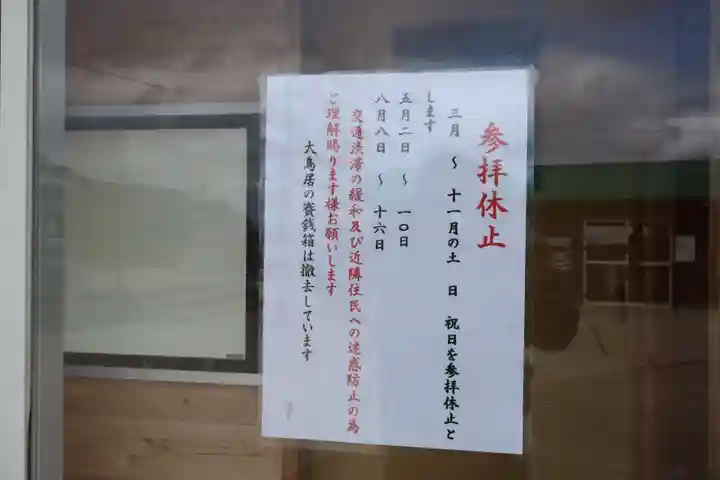 参拝休止
三月 〜 十一月の土 日 祝日を参拝休止と
します
五月二日 〜 一〇日
八月八日 〜 十六日
交通渋滞の緩和及び近隣住民への迷惑防止の為
ご理解賜ります様お願いします
大鳥居の賽銭箱は撤去しています